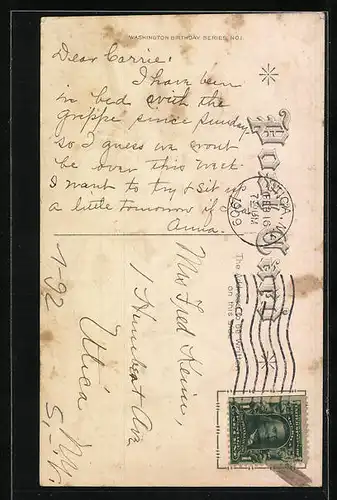 WASHINGTON BIRTHDAY SERIES NO. 1.
Dear Carrie:
I have been
in bed with the
grippe since Sunday
so I guess we wont
be over this week
I want to try & sit up
a little tomorrow if I
Anna.
Post Card
UTICA, N.Y.
FEB 16
7 PM
1909
The
on this
Mrs Fred
Humbert Ave
Utica
N.Y.
1-92